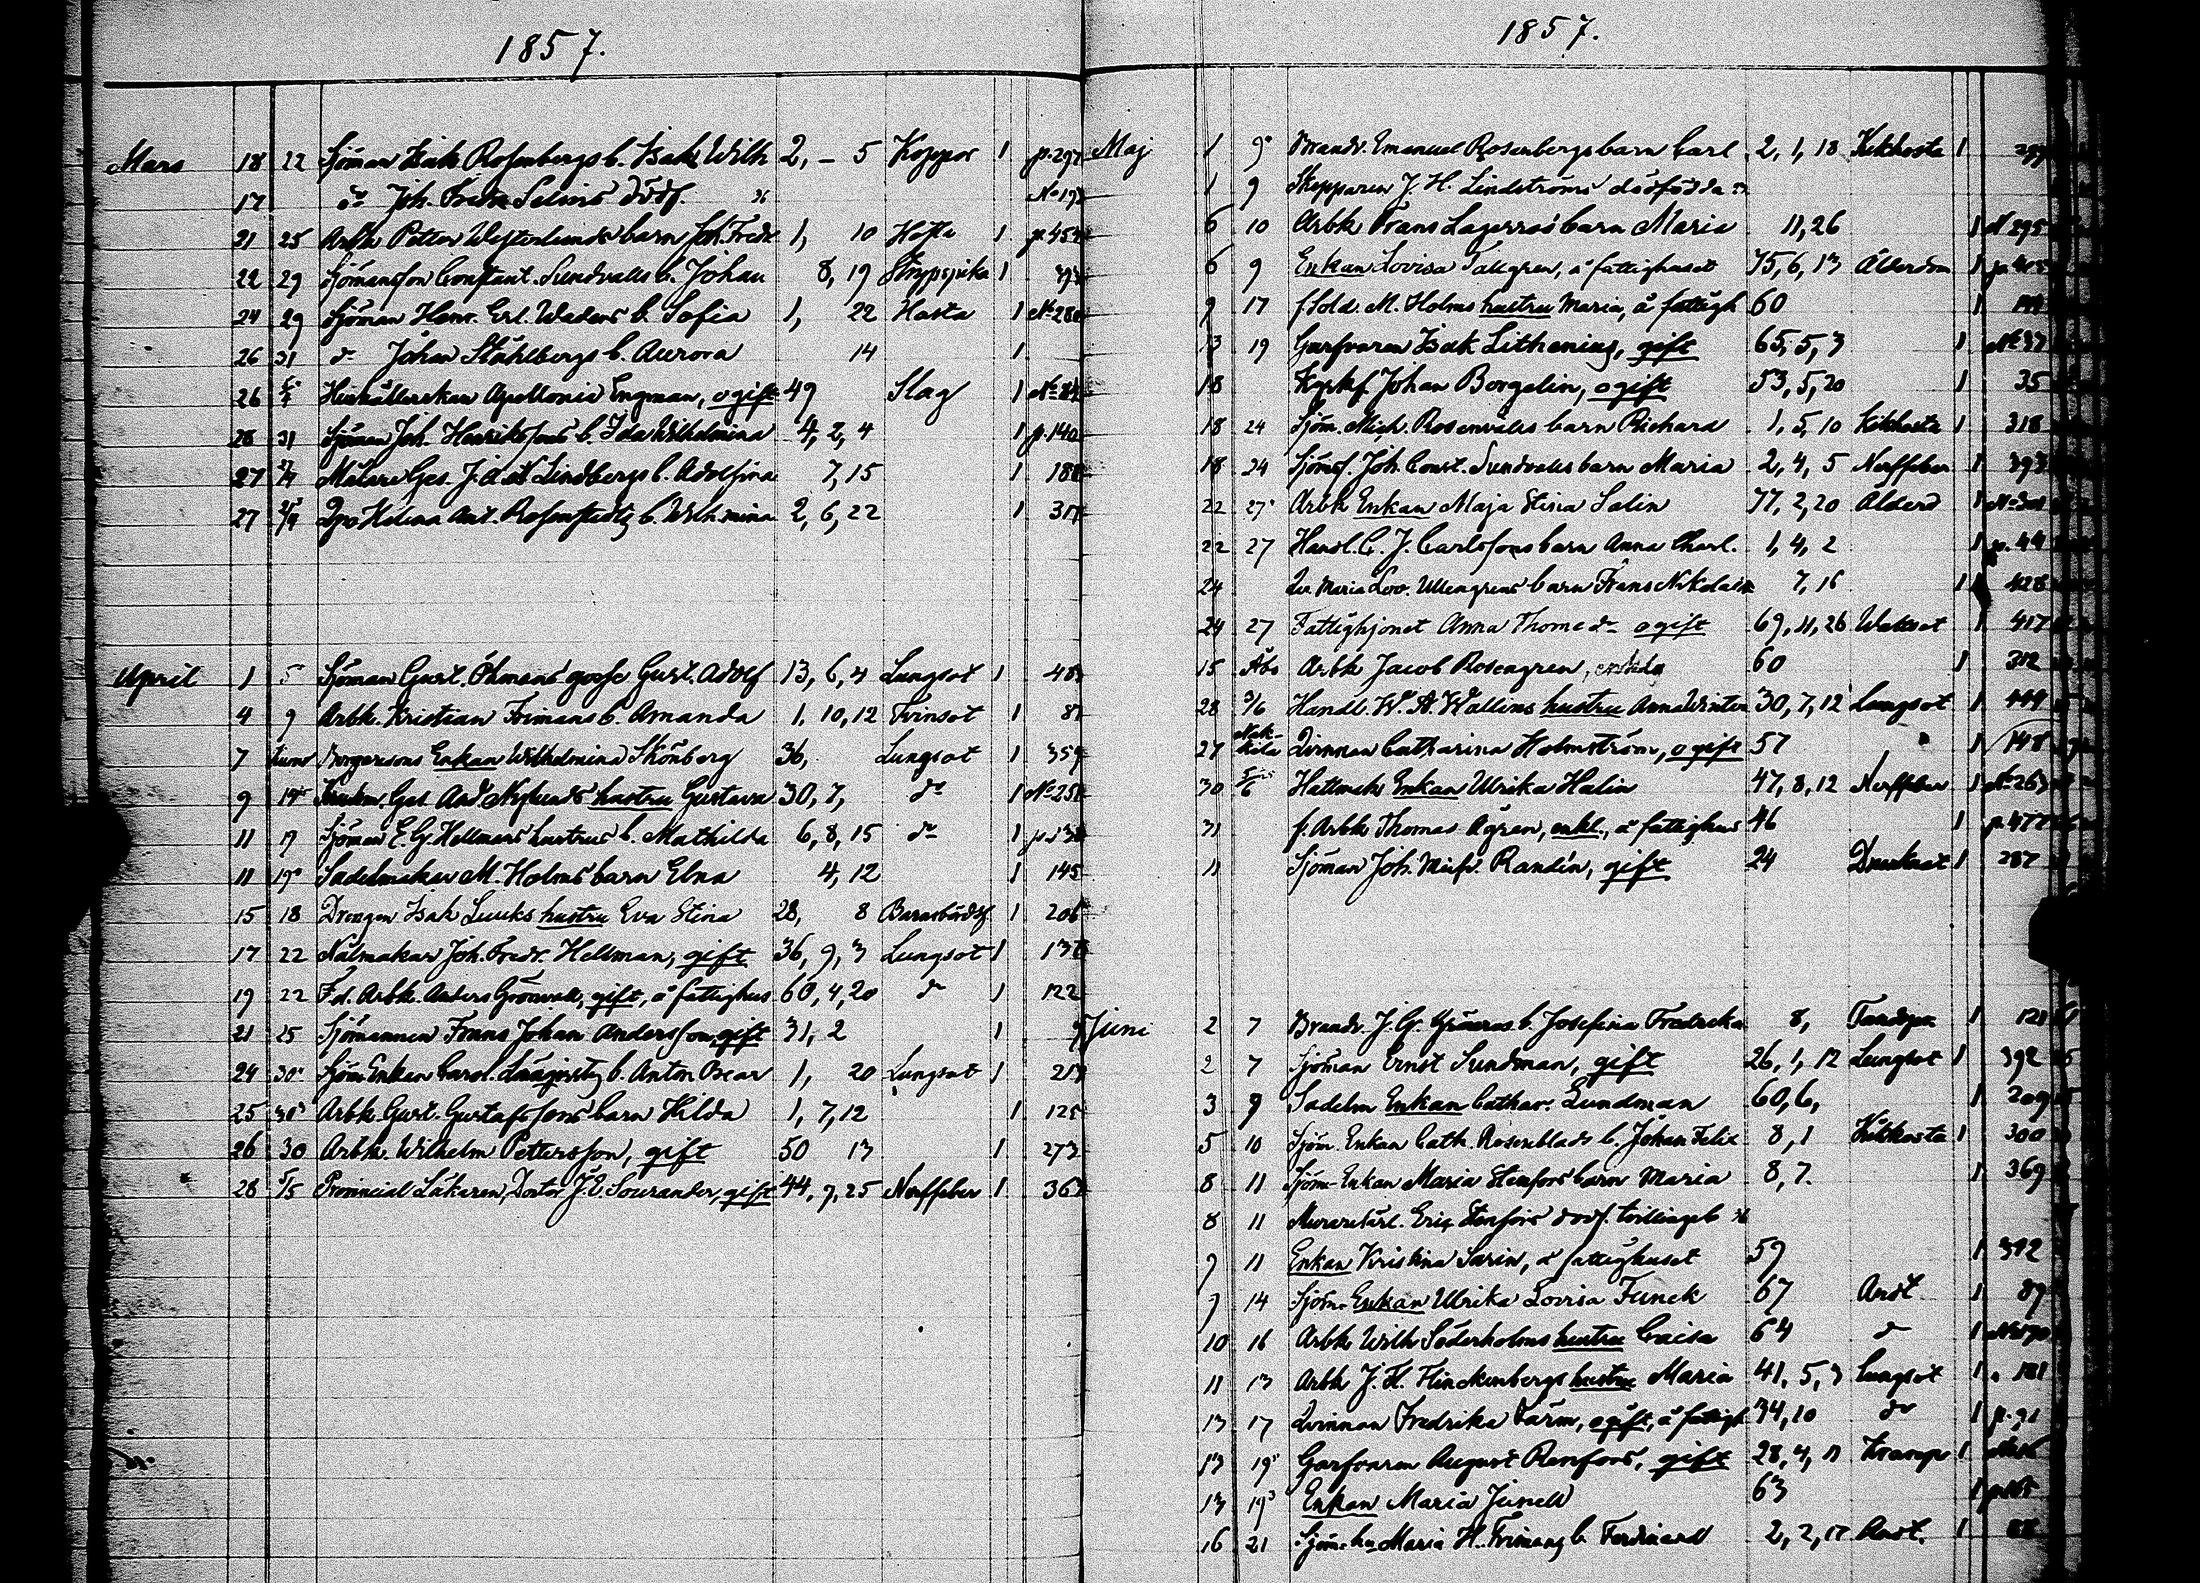 1857.
Mars 18 22 Sjöman Isak Rosenbergs b. Isak Wilh 2, – 5 Koppor 1 p. 297
17 do Joh. Fredr. Selins dödf. No 193
21 25 Arbk Petter Westerlunds barn Joh. Fredr 1, 10 Hosta 1 p. 454
22 29 Sjömansson Constant. Sundvalls b. Johan 8, 19 Strypsjuka 1 393
24 29 Sjöman Henr. Erl. Waders b. Sofia 1, 22 Hosta 1 No 280
26 31 do Johan Ståhlbergs b. Aurora 14 1
26 Hushållerskan Apollonia Engman, ogift 49 Slag 1
28 31 Sjöman Joh. Henrikssons b. Ida Wilhelmina 4, 2, 4 1 p. 140
27 Målare Ges. J. A. Lindbergs b. Adolfina 7, 15 1 180
27 Helena Ant. b. Wilh.mina 2, 6, 22 1
April 1 5 Sjöman Gust. Öhmans gosse Gust. Adolf 13, 6, 4 Lungsot 1
4 9 Arbk. Kristian Frimans b. Amanda 1, 10, 12 Tvinsot 1
7 Borgersons Enkan Wilhelmina Skönberg 36, Lungsot 1 359
9 14 Ges. And Nylunds hustru Gustava 30, 7, do 1 No 250
11 17 Sjöman E. G. Hellmans hustrus b. Mathilda 6, 8, 15 do 1
11 19 Sadelmakar M. Holms barn Elna 4, 12 1 145
15 18 Drengen Isak Luuks hustru Eva Stina 28, 8 Barnsbördsf 1 206
17 22 Nålmakar Joh. Fredr. Hellman, gift 36, 9, 3 Lungsot 1 138
19 22 F.d. Arbk. Anders Grönvall, gift, å fattighus 60, 4, 20 do 1 122
21 25 Sjömannen Frans Johan Andersson, gift 31, 2 1
24 30 Sjöm. Enkan Carol. b. Anton Oscar 1, 20 Lungsot 1
25 30 Arbk Gust. Gustafssons barn Hilda 1, 7, 12 1 125
26 30 Arbk. Wilhelm Pettersson, gift 50 13 1 273
28 5/5 Provincial Läkaren, Doctor J. E. Sourander, gift 44, 9, 25 Nerffeber 1 363
1857.
Maj 1 9 Brandv. Emanuel Rosenbergs barn Carl 2, 1, 18 Kikhosta 1 297
1 9 Skepparen J. H. Lindströms dödfödda
6 10 Arbk Frans Lagerroos barn Maria 11, 26 1 No 295
6 9 Enkan Lovisa Tallgren, å fattighuset 75, 6, 13 Ålderdom 1
9 17 f. Sold. M. Holms hustru Maria, å fattigh 60 1
13 19 Garfvaren Isak Lithenius, gift 65, 5, 3 1 No 37
18 Johan Borgelin, ogift 53, 5, 20 1 35
18 24 Sjöm. Mich. Rosenvalls barn Richard 1, 5, 10 Kikhosta 1 318
18 24 Sjömsf. Joh. Const. Sundvalls barn Maria 2, 4, 5 Nerffeber 1 393
22 27 Arbk Enkan Maja Stina Salin 77, 2, 20 Ålderd 1 No 301
22 27 Handl. C. J. Carlssons barn Anna Charl. 1, 4, 2 1 p. 44
24 Maria Lov. Ullengrens barn Frans Nikolai 7, 16 1 428
24 27 Fattighjonet Anna Thome do ogift 69, 11, 26 Wattsot 1 417
15 Åbo Arbk Jacob Rosengren, enkling 60 1 312
28 3/6 Handl. W. A. Wallins hustru Anna Winter 30, 7, 12 Lungsot 1 444
27 Nakkila Qvinnan Catharina Holmström, ogift 57 1 148
30 5/6 Hattmak Enkan Ulrika Halin 47, 8, 12 Nerffeber 1 No 263
31 f. Arbk Thomas Ågren, enkl., å fattighus 46 1 p. 477
11 Sjöman Joh. Randén, gift 24 Drunknat 1 287
Juni 2 7 Brandv. J. G. b. Josefina Fredrika 8, 1 121
2 7 Sjöman Ernst Sundman, gift 26, 1, 12 Lungsot 1 392
3 9 Sadelm Enkan Cathar. Lundman 60, 6, 1 209
5 10 Sjöm. Enkan Cath. Rosenblads b. Johan Felix 8, 1 Kikhosta 1 300
8 11 Sjöm. Enkan Maria Stenfors barn Maria 8, 7. 1 369
8 11 Murarelärl. Eric Stenfors dödf. tvillingeb
9 11 Enkan Kristina Sarin, å fattighuset 59 1 312
9 14 Sjöm. Enkan Ulrika Lovisa Funck 67 Andt 1 89
10 16 Arbk Wilh Söderholms hustru Caisa 64 do 1
11 13 Arbk J. H. Flinckenbergs hustru Maria 41, 5, 3 Lungsot 1 181
13 17 Qvinnan Fredrika Farm, ogift, å fattigh 34, 10 do 1 p. 91
13 19 Garfvaren August Renfors, gift 28, 4, 11 Kramp 1
13 19 Enkan Maria Junell 63 1
16 21 Sjöm. hu Maria H. Frimans b. Ferdinand 2, 2, 17 Andt. 1